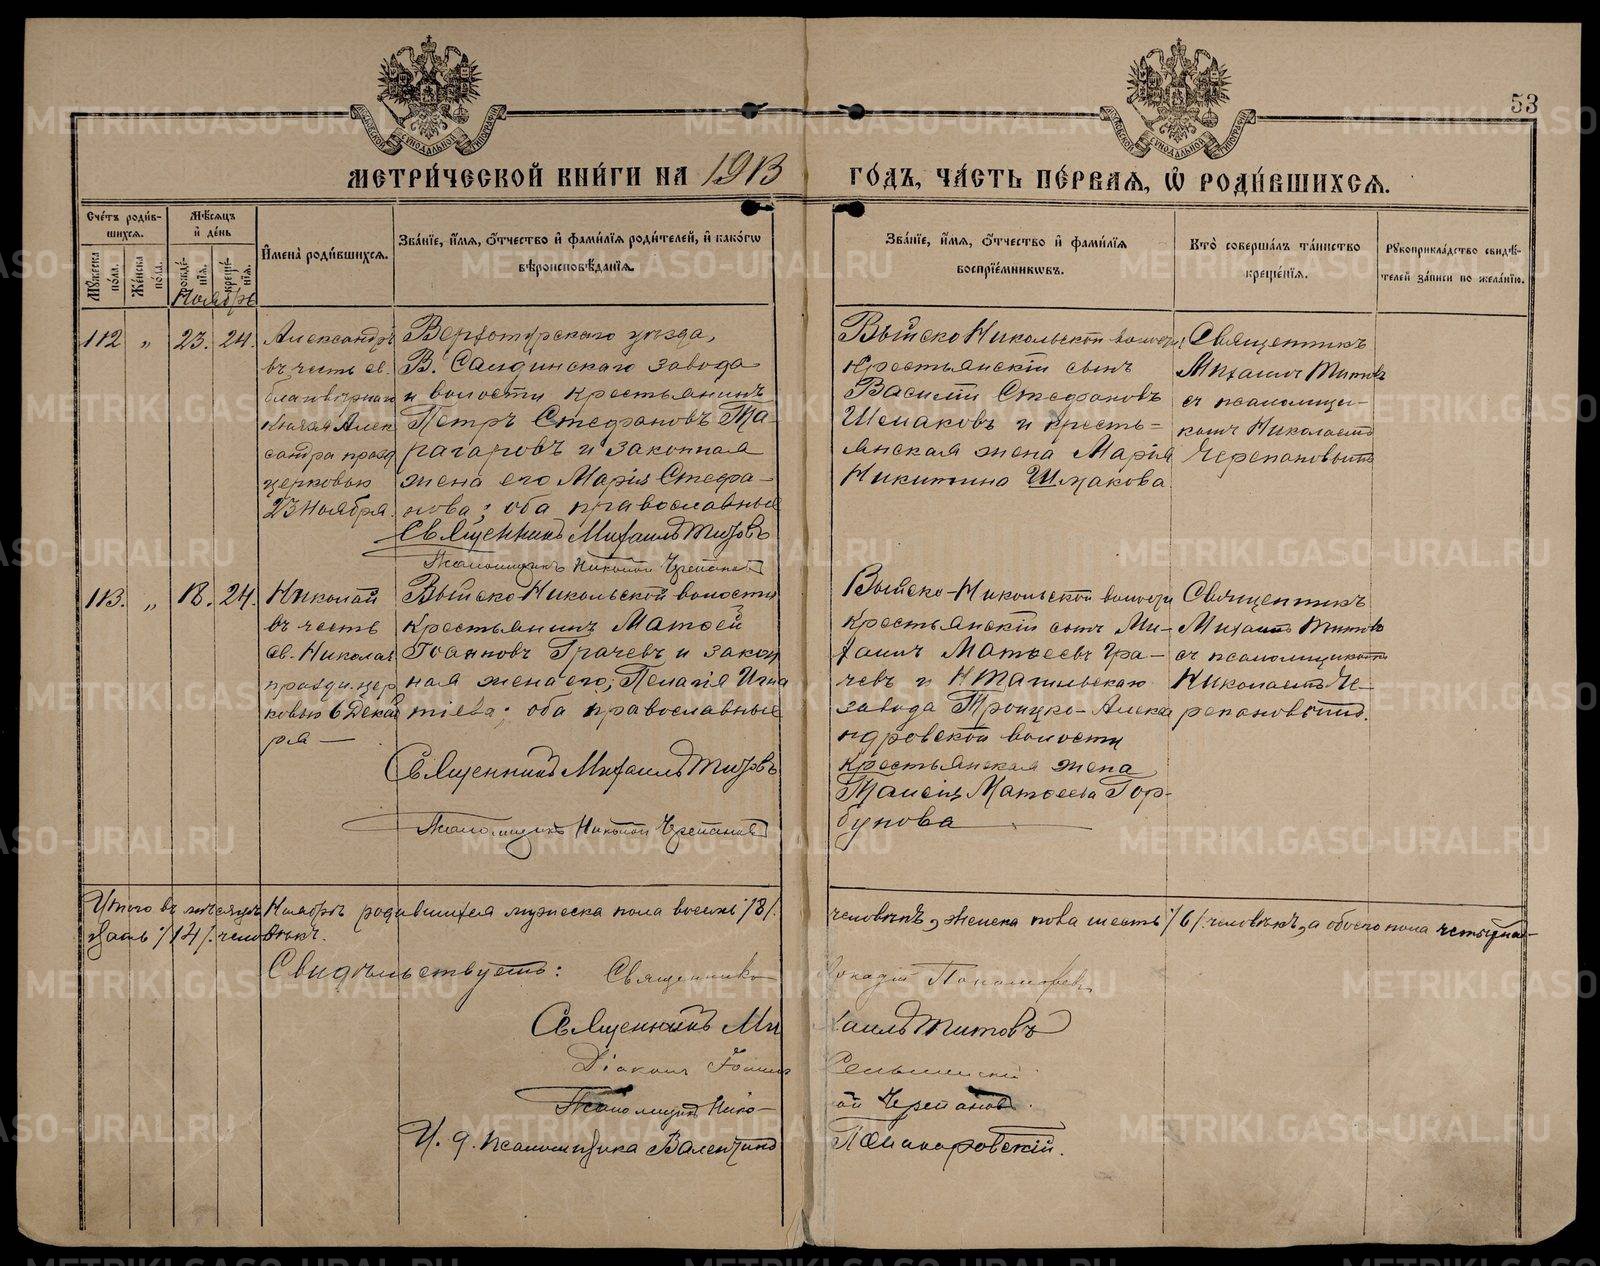 53
МЕТРИЧЕСКОЙ КНИГИ НА 1913 ГОДЪ, ЧАСТЬ ПЕРВАЯ, Ѡ РОДИВШИХСЯ.
Счетъ родив-
шихся.
Мужеска пола.
Женска пола.
Мѣсяцъ
и день
рожденія.
крещенія.
Имена родившихся.
Званіе, имя, отчество и фамилія родителей, и какогѡ
вѣроисповѣданія.
Званіе, имя, отчество и фамилія
воспріемникѡвъ.
Кто совершалъ таинство
крещенія.
Рукоприкладство свидѣ-
телей записи по желанію.
Ноябрь
112 „ 23. 24.
Александръ
въ честь св.
благовѣрнаго
Князя Алек
сандра празд
церковью
23 Ноября.
Верхотурскаго уѣзда,
В. Салдинскаго завода
и волости крестьянинъ
Петръ Стефановъ Та-
рагаровъ и законная
жена его Марія Стефа-
нова; оба православные
Священникъ Михаилъ Титовъ
Псаломщикъ Николай Черепановъ
Выйско-Никольской волости
крестьянскій сынъ
Василій Стефановъ
Шемаковъ и кресть-
янская жена Марія
Никитина Шмакова
Священникъ
Михаилъ Титовъ
съ псаломщи-
комъ Николаемъ
Черепановымъ
113. „ 18. 24.
Николай
въ честь
св. Николая
праздн. цер
ковью 6 Декаб
ря —
Выйско-Никольской волости
крестьянинъ Матѳей
Іоанновъ Грачевъ и закон
ная жена его, Пелагія Игна
тіева; оба православные
Священникъ Михаилъ Титовъ
Псаломщикъ Николай Черепановъ
Выйско-Никольской волости
крестьянскій сынъ Ми-
хаилъ Матѳеевъ Гра-
чевъ и НТагильскаго
завода Троицко-Алекса
ндровской волости
крестьянская жена
Таисія Матѳеева Гор-
бунова
Священникъ
Михаилъ Титовъ
съ псаломщикомъ
Николаемъ Че-
репановымъ.
Итого въ мѣсяцѣ Ноябрѣ родившихся мужеска пола восемь /8/ человѣкъ, женска пола шесть /6/ человѣкъ, а обоего пола четырна-
дцать /14/ человѣкъ.
Свидѣтельствуютъ: Священникъ Аркадій Пономаревъ
Священникъ Михаилъ Титовъ
Діаконъ
Псаломщикъ Николай Черепановъ.
И. д. Псаломщика Валентинъ
METRIKI.GASO-URAL.RU